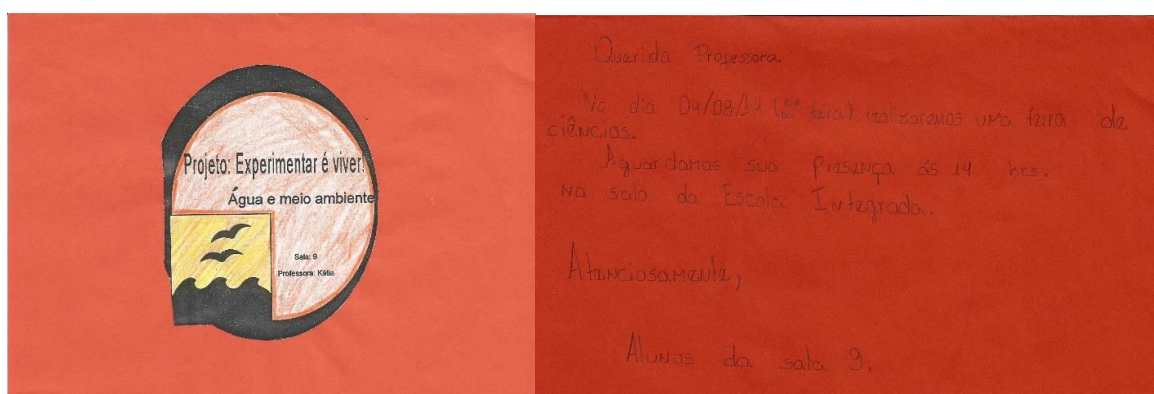 Projeto: Experimentar é viver!
Água e meio ambiente
Sala: 9
Professora: Kátia
Querida Professora
No dia 04/08/14 (2ª feira) realizaremos uma feira de
ciências.
Aguardamos sua Presença às 14 hrs.
Na sala da Escola Integrada.
Atenciosamente,
Alunos da sala 9.